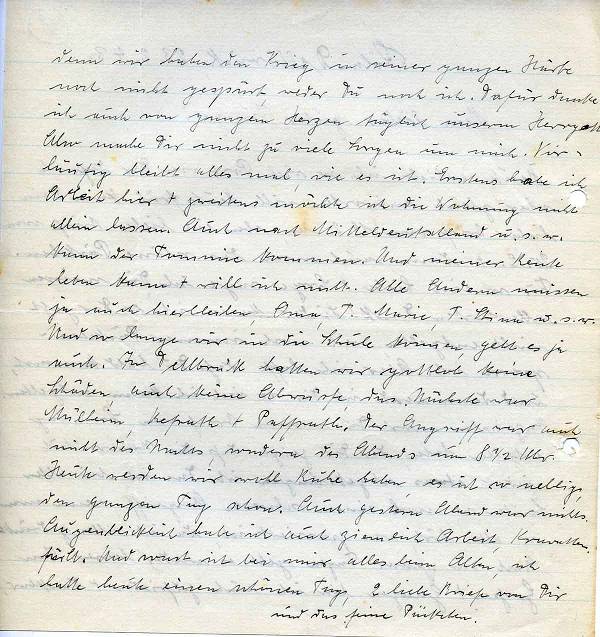 denn wir haben den Krieg in seiner ganzen Härte
noch nicht gespürt, weder Du noch ich. Dafür danke
ich auch von ganzem Herzen täglich unserm Herrgott
Also mache Dir nicht zu viele Sorgen um mich. Vor-
läufig bleibt alles mal, wie es ist. Erstens habe ich
Arbeit hier + zweitens möchte ich die Wohnung nicht
allein lassen. Auch nach Mitteldeutschland u.s.w.
kann der Tommie kommen. Und meiner Leute
leben kann + will ich nicht. Alle Andern müssen
ja auch hierbleiben, Oma, T. Marie, T. Stina u.s.w.
Und so lange wir in die Schule können, geht es ja
auch. In Dellbrück hatten wir gottlob keine
Schäden, auch keine Abwürfe, das Nächste war
Mülheim, Refrath + Paffrath. Der Angriff war auch
nicht des Nachts, sondern des Abends um 8 1/2 Uhr.
Heute werden wir wohl Ruhe haben, es ist so neblig,
den ganzen Tag schon. Auch gestern Abend war nichts.
Augenblicklich habe ich auch ziemlich Arbeit, Krawatten
Und sonst ist bei mir alles beim Alten, ich
hatte heute einen schönen Tag, 2 liebe Briefe von Dir
und das feine Päckchen.